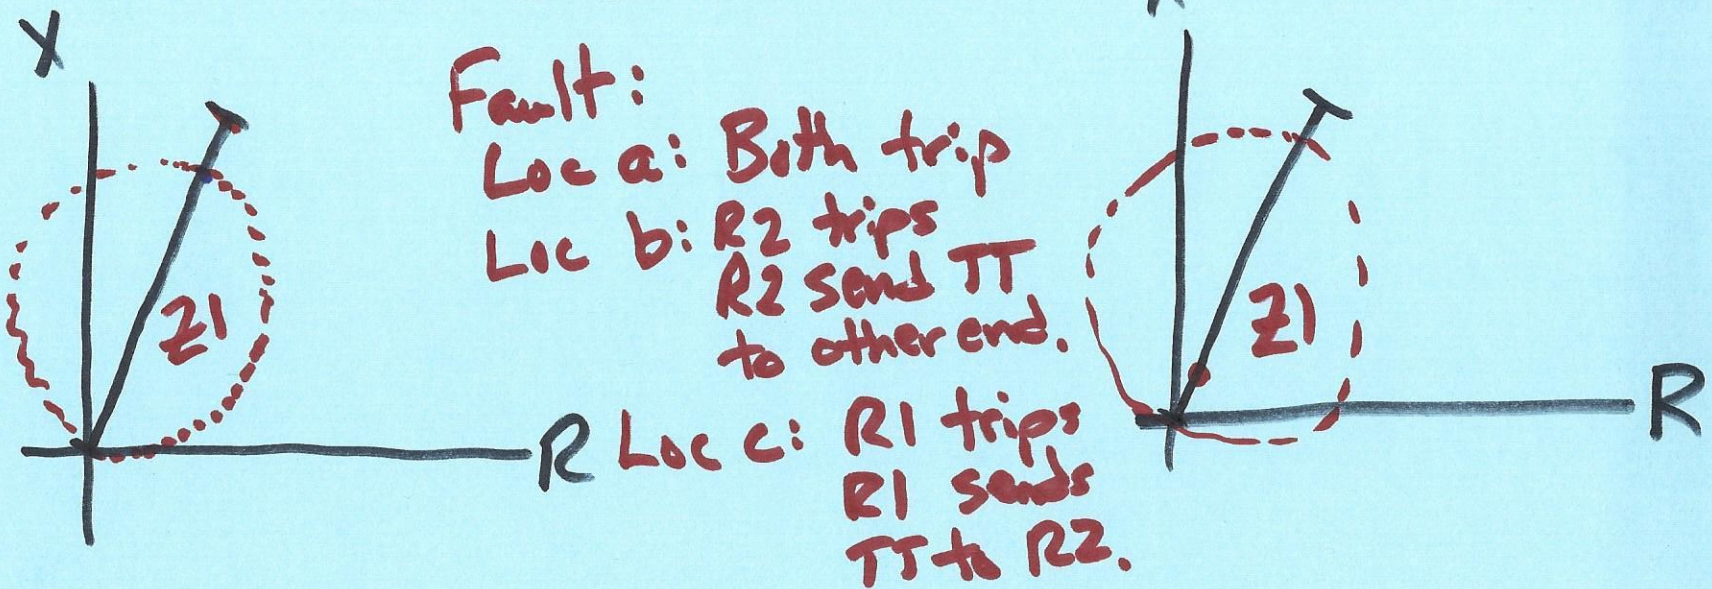 X
Fault:
Loc a: Both trip
Loc b: R2 trips
R2 send TT
to other end.
Loc c: R1 trips
R1 sends
TT to R2.
Z1
R
Z1
R